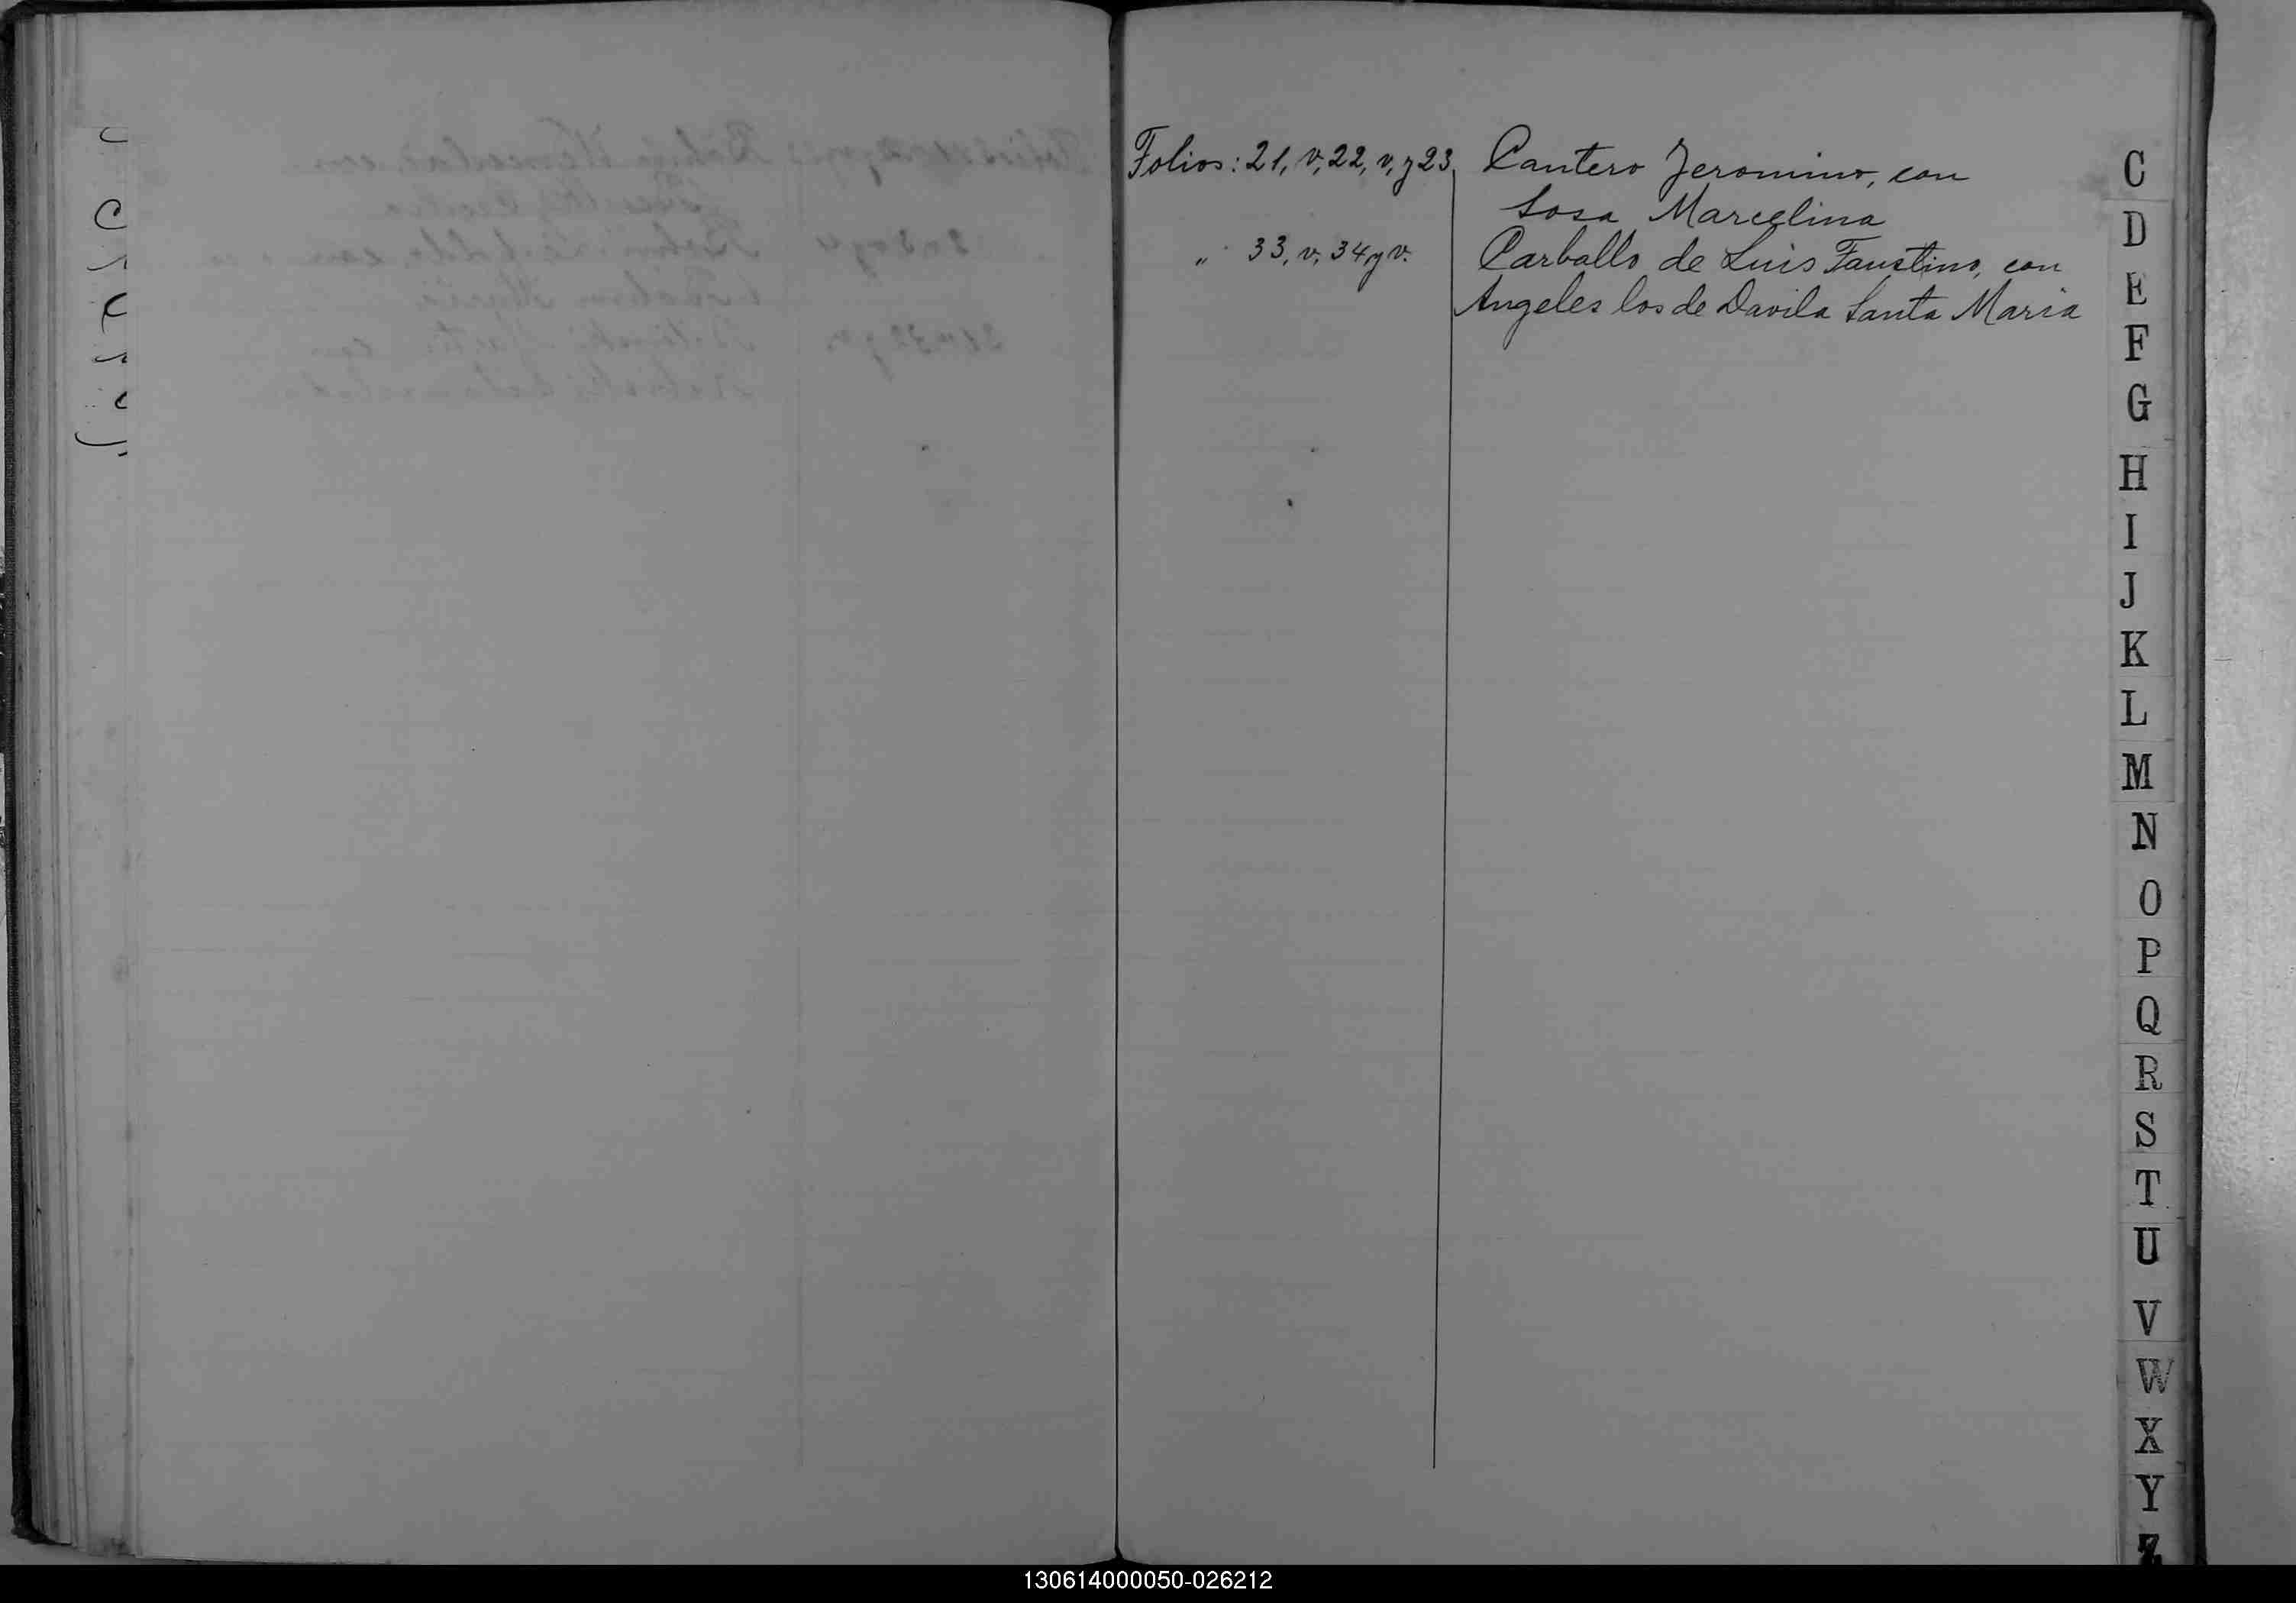 Folios: 21, v, 22, v, y 23, Cantero Jeronimo, con
Sosa Marcelina
" 33, v, 34 y v. Carballo de Luis Faustino, con
Angeles los de Davila Santa Maria
C
D
E
F
G
H
I
J
K
L
M
N
O
P
Q
R
S
T
U
V
W
X
Y
Z
130614000050-026212